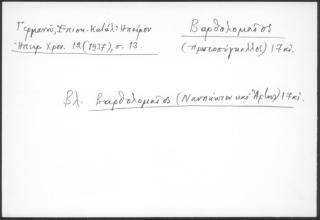 Γερμανοῦ, Ἐπισκ. Κατάλ. Ἠπείρου
Ἠπειρ. Χρον. 12 (1937), σ. 13.
Βαρθολομαῖος
(πρωτοσύγκελλος) 17 αἰ.
βλ. Βαρθολομαῖος (Ναυπάκτου καὶ Ἄρτης) 17 αἰ.